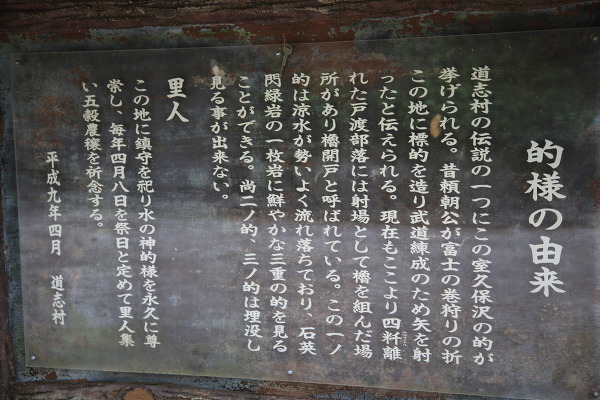 的様の由来
道志村の伝説の一つにこの室久保沢の的が
挙げられる。昔頼朝公が富士の巻狩りの折
この地に標的を造り武道練成のため矢を射
ったと伝えられる。現在もここより四粁離
れた戸渡部落には射場として櫓を組んだ場
所があり櫓開戸と呼ばれている。この一ノ
的は涼水が勢いよく流れ落ちており、石英
閃緑岩の一枚岩に鮮やかな三重の的を見る
ことができる。尚二ノ的、三ノ的は埋没し
見る事が出来ない。
里人
この地に鎮守を祀り水の神的様を永久に尊
崇し、毎年四月八日を祭日と定めて里人集
い五穀農穣を祈念する。
平成九年四月 道志村